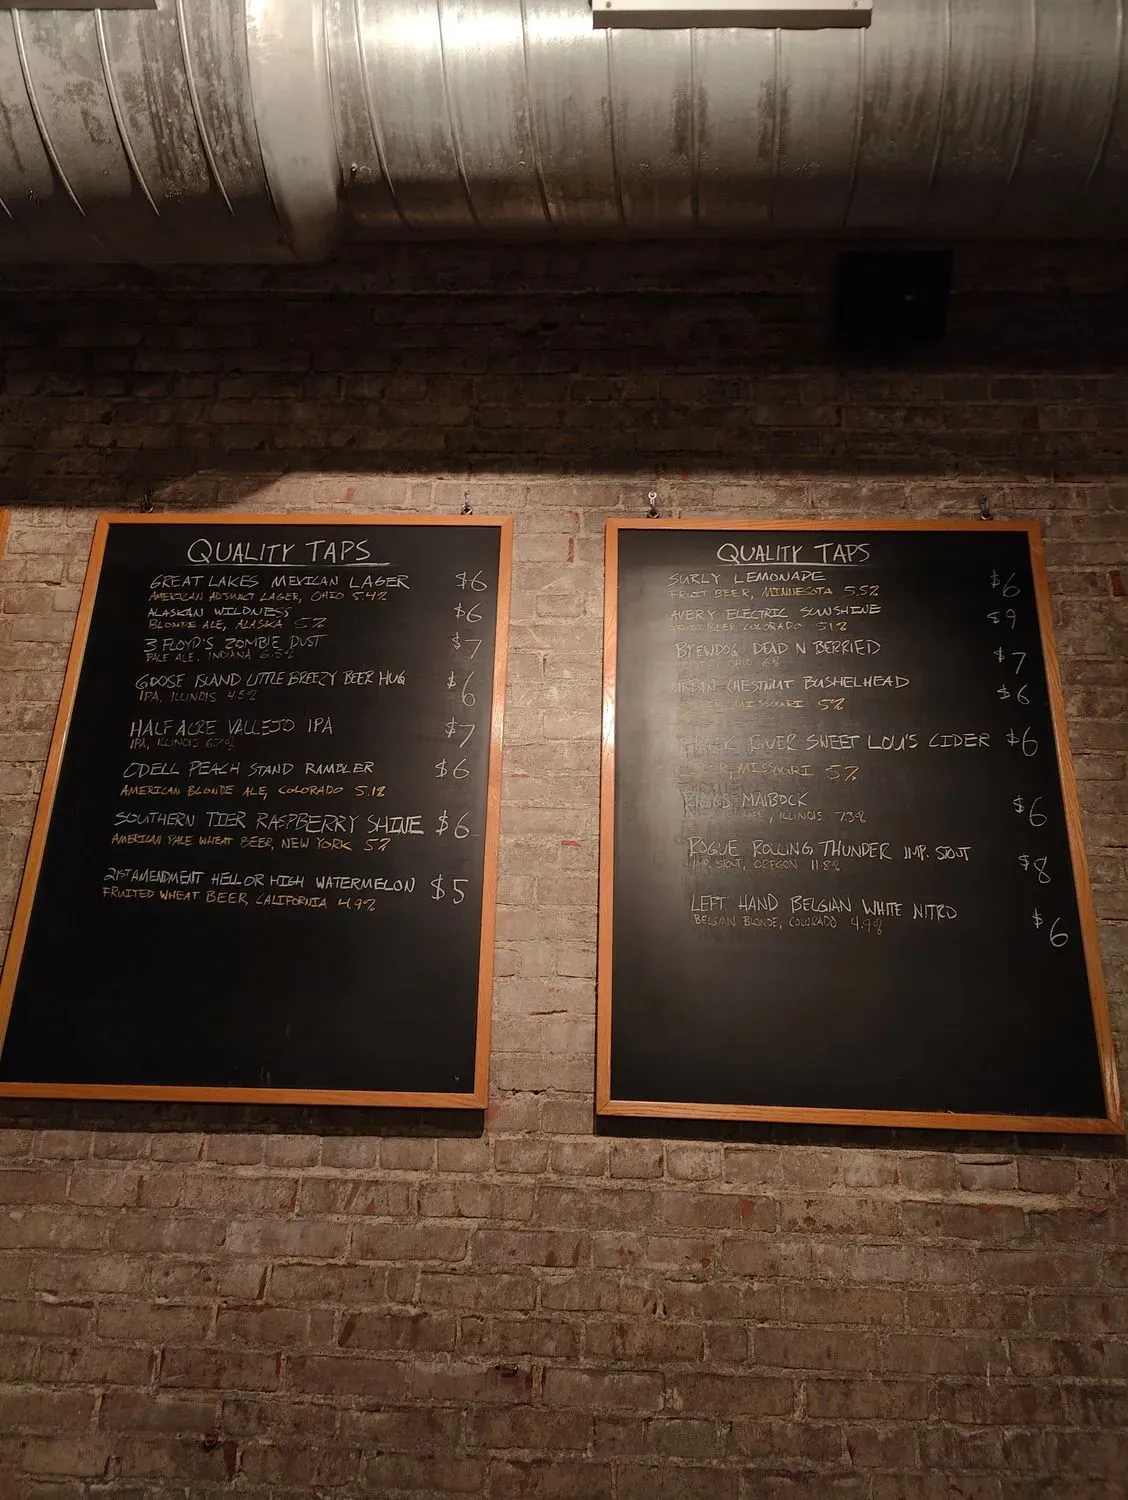 QUALITY TAPS
GREAT LAKES MEXICAN LAGER $6
AMERICAN ADJUNCT LAGER, OHIO 5.4%
ALASKAN WILDNESS $6
BLONDE ALE, ALASKA 5%
3 FLOYD'S ZOMBIE DUST $7
PALE ALE, INDIANA 6.5%
GOOSE ISLAND LITTLE BREEZY BEER HUG $6
IPA, ILLINOIS 4.5% 6
HALF ACRE VALLEJO IPA $7
IPA, ILLINOIS 6.7%
ODELL PEACH STAND RAMBLER $6
AMERICAN BLONDE ALE, COLORADO 5.1%
SOUTHERN TIER RASPBERRY SHINE $6
AMERICAN PALE WHEAT BEER, NEW YORK 5%
21ST AMENDMENT HELL OR HIGH WATERMELON $5
FRUITED WHEAT BEER, CALIFORNIA 4.9%
QUALITY TAPS
SURLY LEMONADE $6
FRUIT BEER, MINNESOTA 5.5%
AVERY ELECTRIC SUNSHINE $9
FRUIT BEER, COLORADO 5.1%
BREWDOG DEAD N BERRIED $7
OHIO 6%
URBAN CHESTNUT BUSHELHEAD $6
MISSOURI 5%
RIVER SWEET LOU'S CIDER $6
MISSOURI 5%
RIGGS MAIBOCK $6
ILLINOIS 7.3%
ROGUE ROLLING THUNDER IMP. STOUT $8
IMP. STOUT, OREGON 11.8%
LEFT HAND BELGIAN WHITE NITRO $6
BELGIAN BLONDE, COLORADO 4.9%